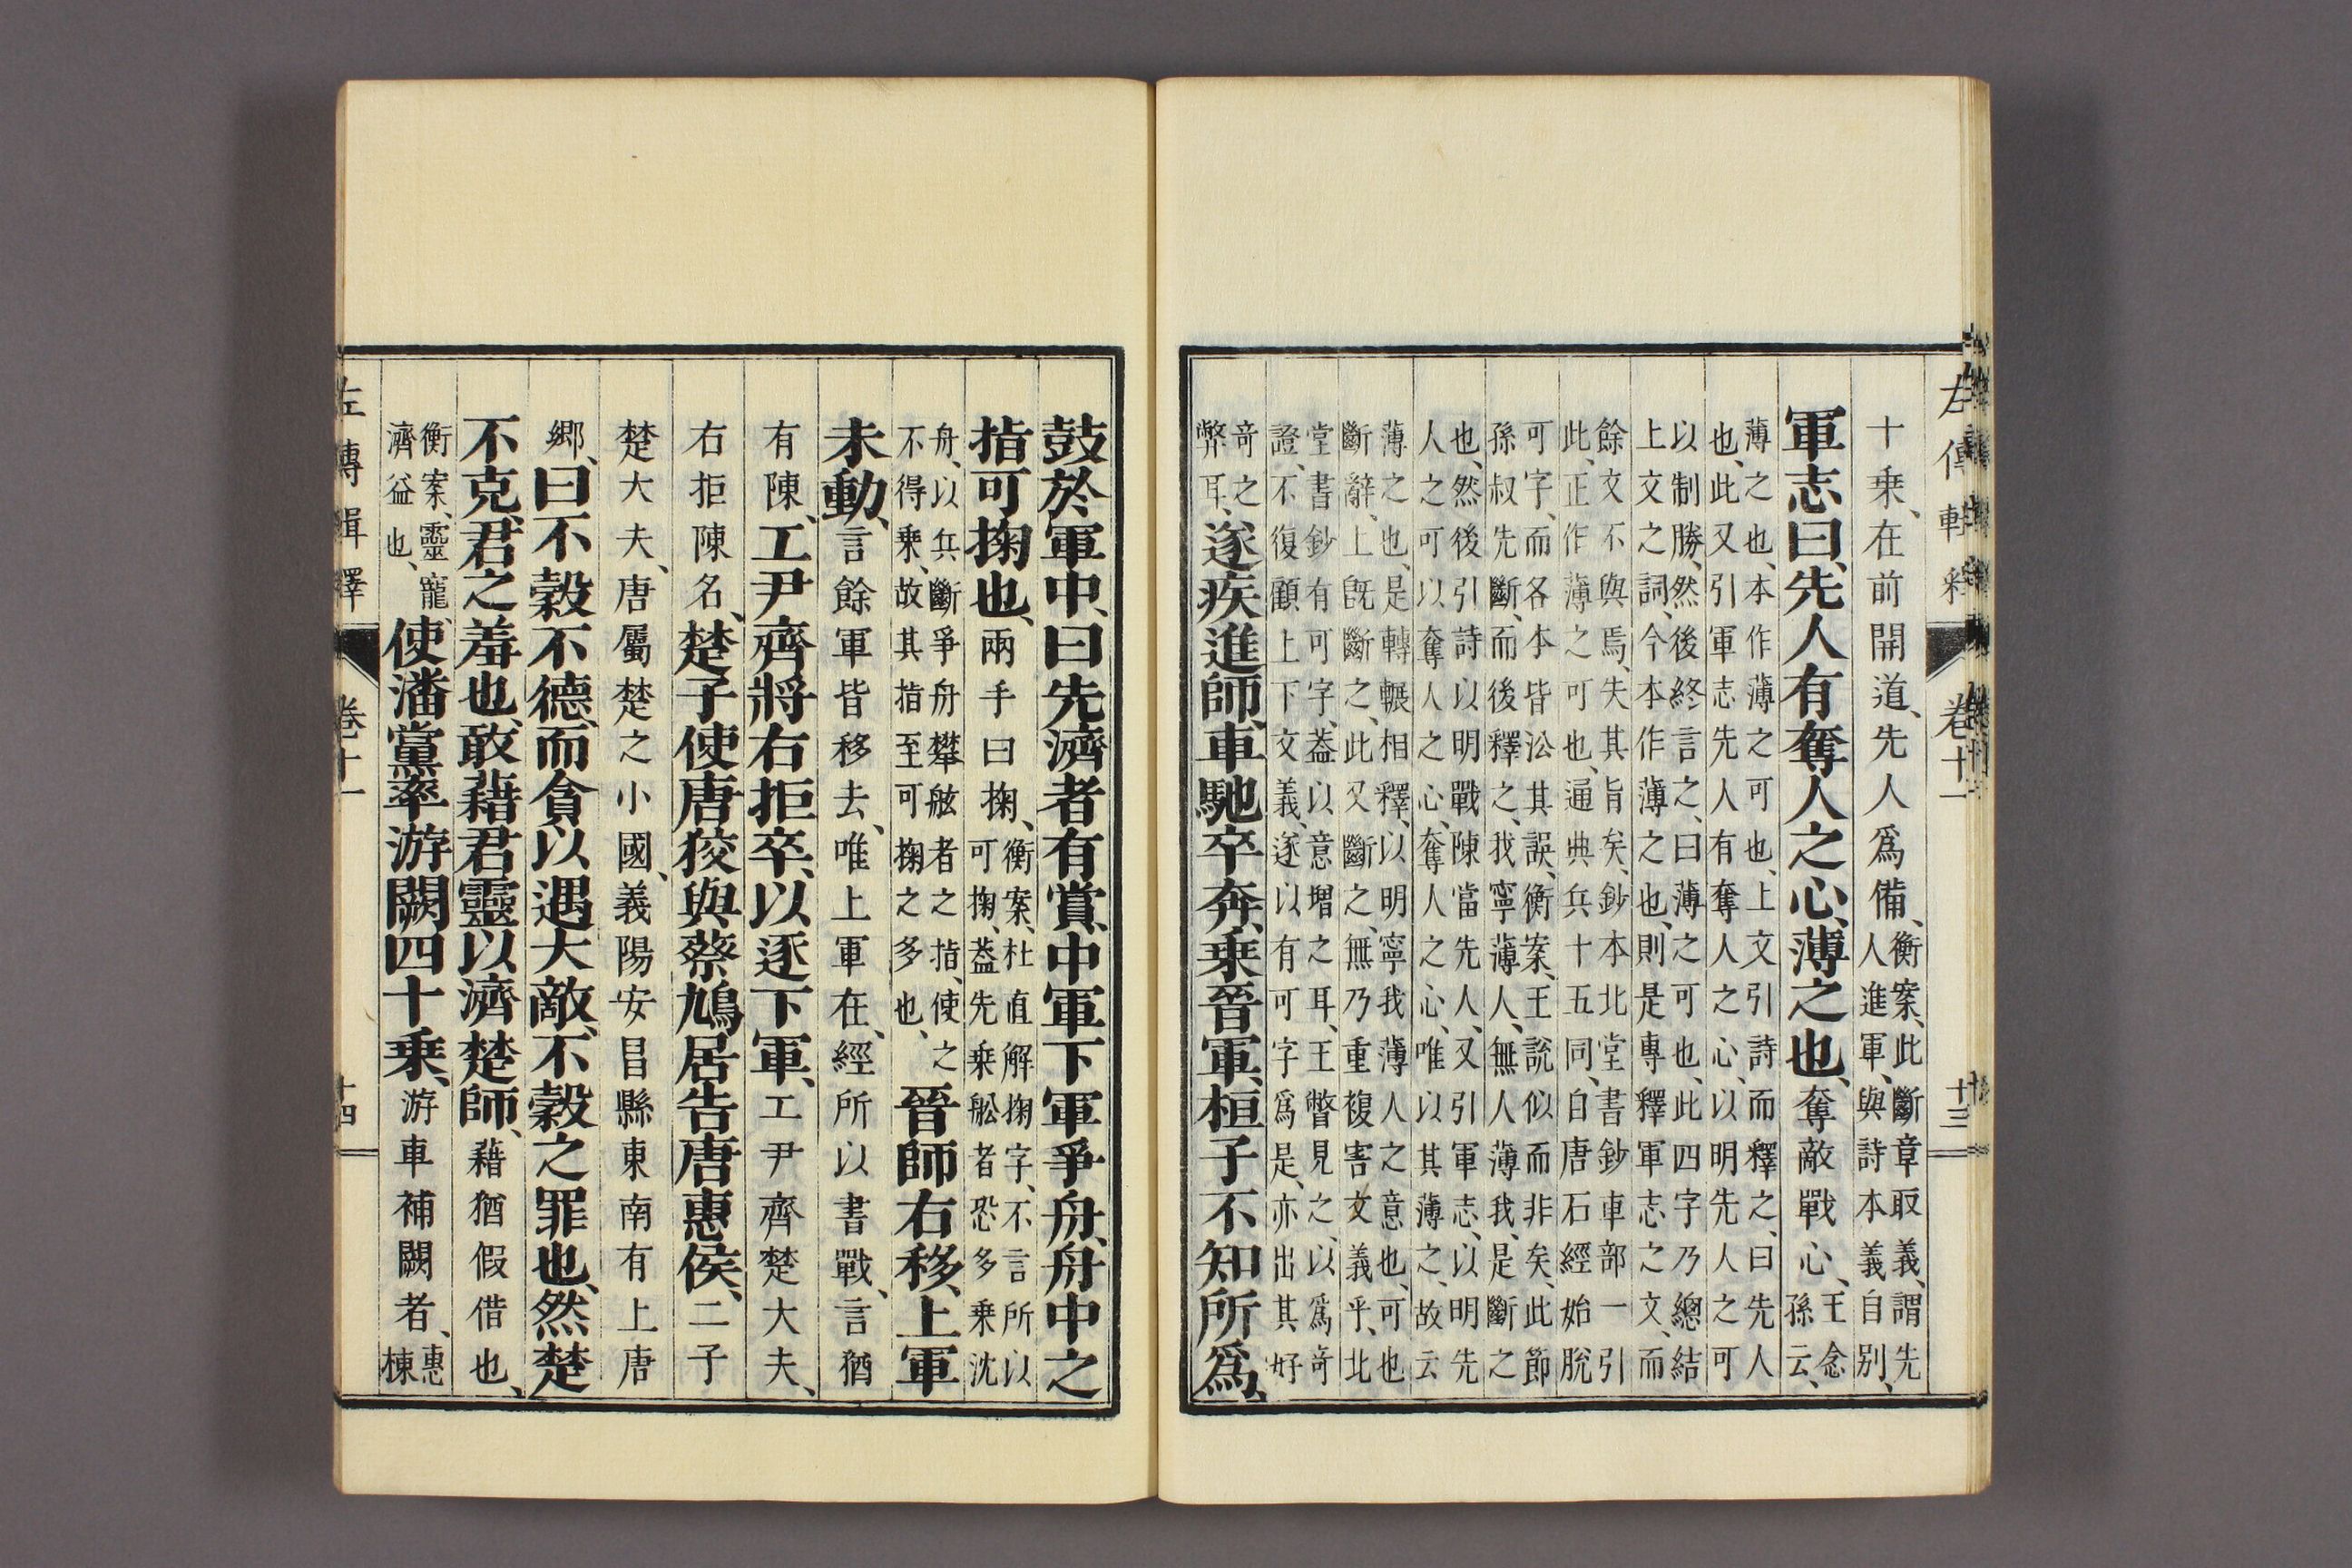 左傳輯釋 卷十一 十三
十乘、在前開道、先人爲備、
衡案、此斷章取義、謂先
人進軍、與詩本義自別、
軍志曰、先人有奪人之心、薄之也、奪敵戰心、
王念
孫云、
薄之也、本作薄之可也、上文引詩而釋之、曰先人
也、此又引軍志先人有奪人之心、以明先人之可
以制勝、然後終言之、曰薄之可也、此四字乃總結
上文之詞、今本作薄之也、則是專釋軍志之文、而
餘文不與焉、失其旨矣、鈔本北堂書鈔車部一引
此、正作薄之可也、通典兵十五同、自唐石經始脫
可字、而各本皆沿其誤、衡案、王說似而非矣、此節
孫叔先斷、而後釋之、我寧薄人、無人薄我、是斷之
也、然後引詩以明戰陳當先人、又引軍志、以明先
人之可以奪人之心、奪人之心、唯以其薄之、故云
薄之也、是轉輾相釋、以明寧我薄人之意也、可也
斷辭、上既斷之、此又斷之、無乃重複害文義乎、北
堂書鈔有可字、葢以意增之耳、王瞥見之、以爲奇
證、不復顧上下文義、遂以有可字爲是、亦出其好
奇之
弊耳、
遂疾進師、車馳卒奔、乘晉軍、桓子不知所爲、
鼓於軍中、曰先濟者有賞、中軍下軍爭舟、舟中之
指可掬也、兩手曰掬、
衡案、杜直解掬字、不言所以
可掬、葢先乘舩者恐多乘沈
舟、以兵斷爭舟攀舷者之指、使之
不得乘、故其指至可掬之多也、
晉師右移、上軍
未動、言餘軍皆移去、唯上軍在、經所以書戰、言猶
有陳、工尹齊將右拒卒、以逐下軍、工尹齊楚大夫、
右拒陳名、楚子使唐狡與蔡鳩居告唐惠侯、二子
楚大夫、唐屬楚之小國、義陽安昌縣東南有上唐
鄉、曰不穀不德、而貪以遇大敵、不穀之罪也、然楚
不克、君之羞也、敢藉君靈以濟楚師、藉猶假借也、
衡案、靈寵、
濟益也、
使潘黨率游闕四十乘、游車補闕者、
惠
棟
左傳輯釋 卷十一 十四